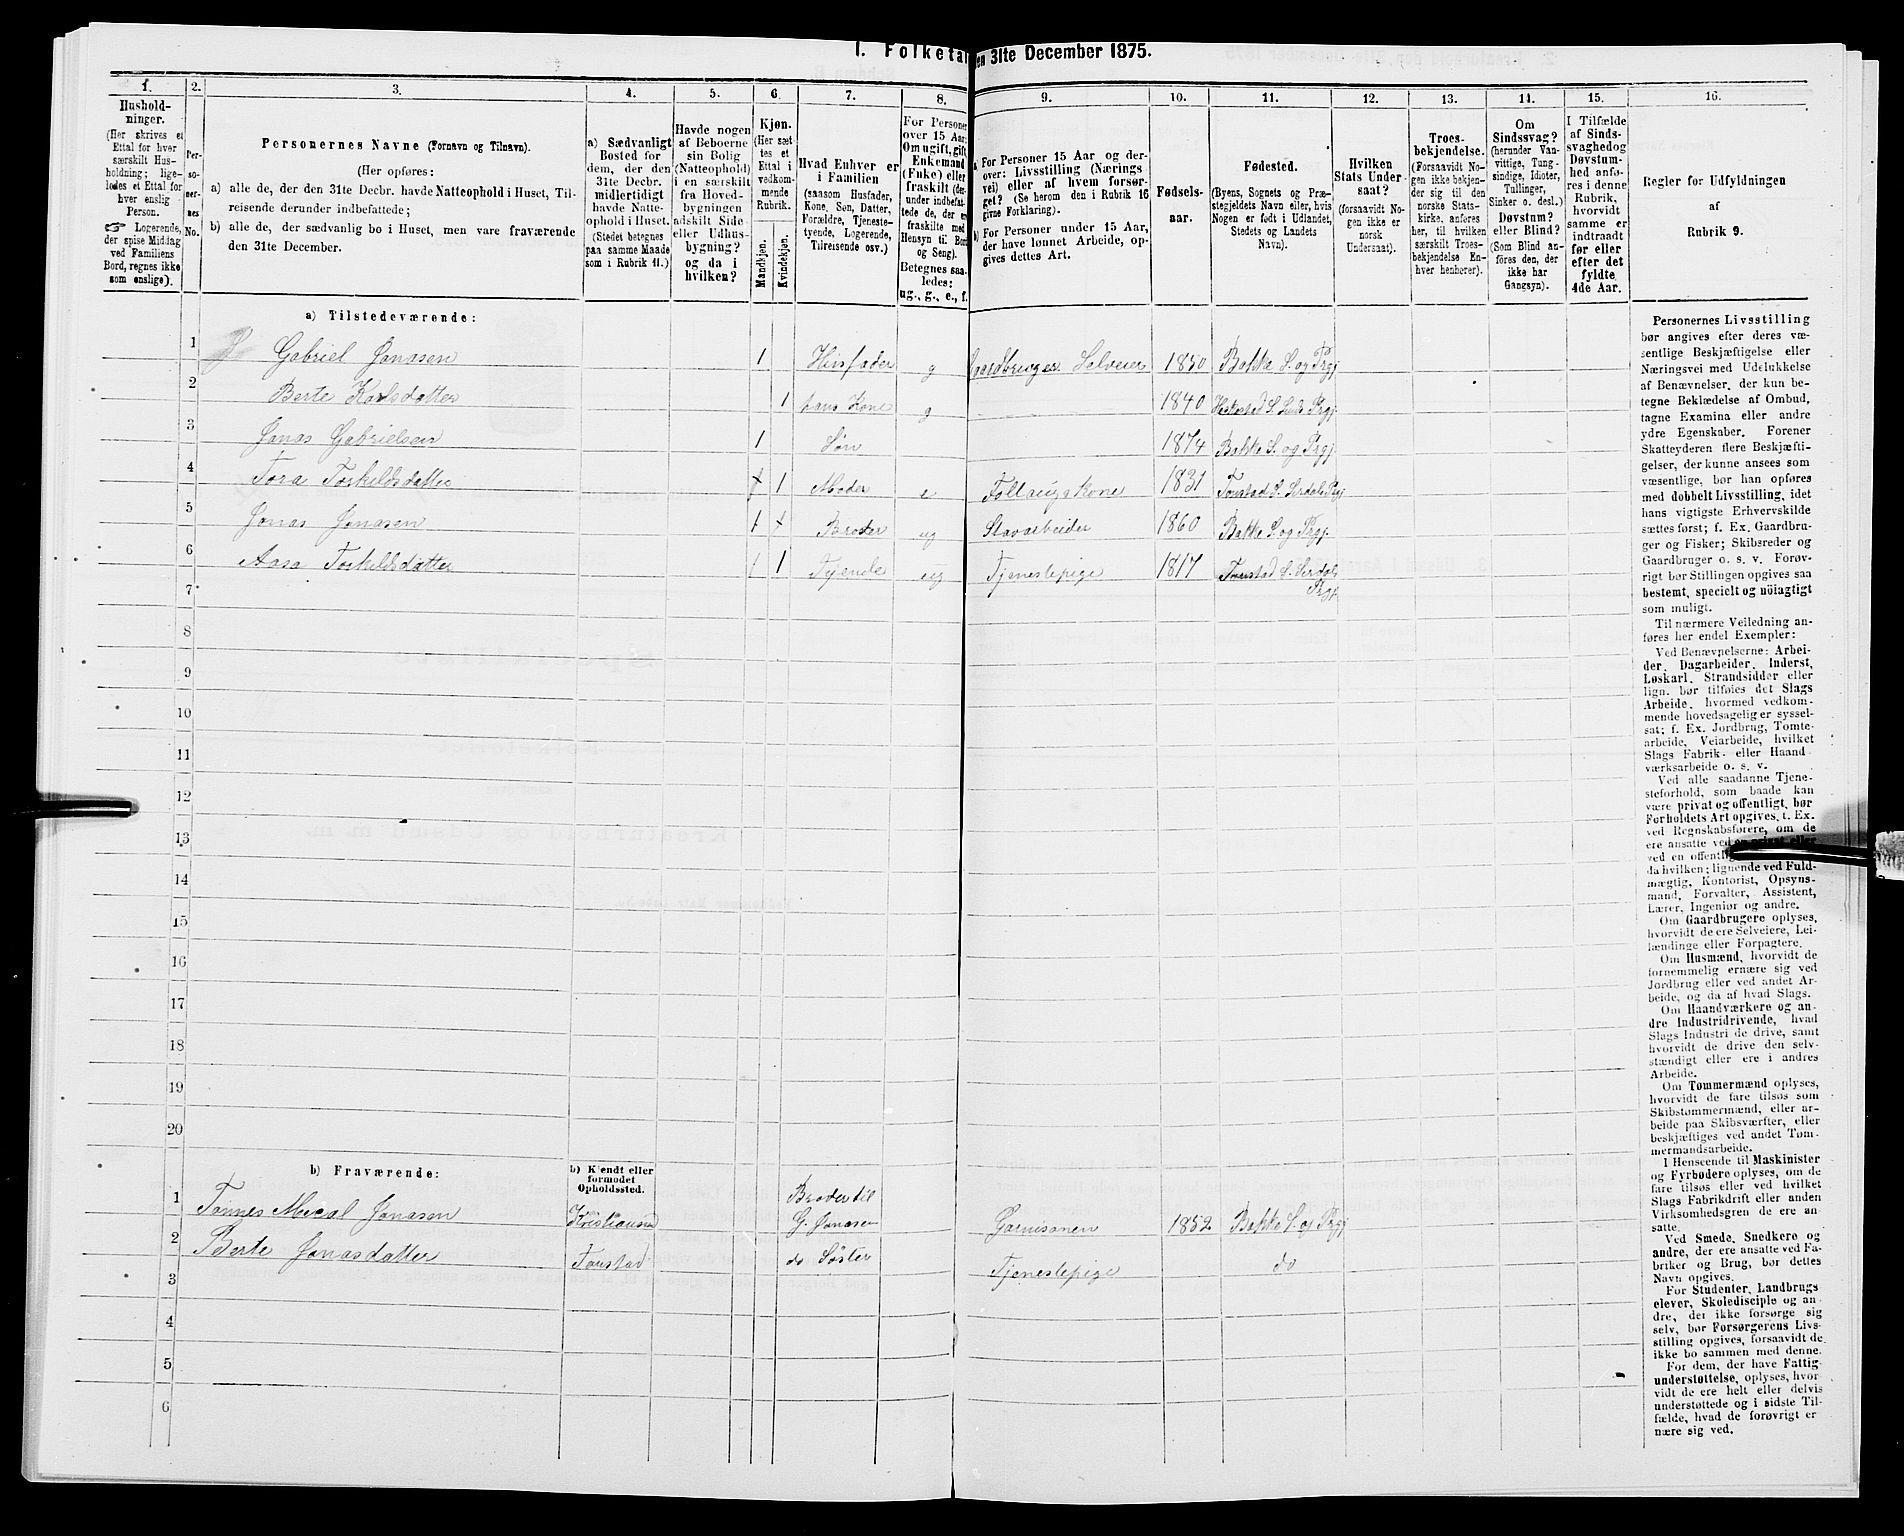 I. Folketa
en 31te December 1875.
1. 2. 3. 4. 5. 6. 7. 8. 9. 10. 11. 12. 13. 14. 15. 16.
Hushold-
ninger.
(Her skrives et
Ettal for hver
særskilt Hus-
holdning; lige-
ledes et Ettal for
hver enslig
Person.
☞ Logerende,
der spise Middag
ved Familiens
Bord, regnes ikke
som enslige).
Per-
so-
ner-
nes
No.
Personernes Navne (Fornavn og Tilnavn).
(Her opføres:
a) alle de, der den 31te Decbr. havde Natteophold i Huset, Til-
reisende derunder indbefattede;
b) alle de, der sædvanlig bo i Huset, men vare fraværende
den 31te December.
a) Sædvanligt
Bosted for
dem, der den
31te Decbr.
midlertidigt
havde Natte-
ophold i Huset.
(Stedet betegnes
paa samme Maade
som i Rubrik 11.)
Havde nogen
af Beboerne
sin Bolig
(Natteophold)
i en særskilt
fra Hoved-
bygningen
adskilt Side-
eller Udhus-
bygning?
og da i
hvilken?
Kjøn.
(Her sæt-
tes et
Ettal i
vedkom-
mende
Rubrik.
Mandkjøn.
Kvindekjøn.
Hvad Enhver er
i Familien
(saasom Husfader,
Kone, Søn, Datter,
Forældre, Tjeneste-
tyende, Logerende,
Tilreisende osv.)
For Personer
over 15 Aar:
Om ugift, gift,
Enkemand
(Enke) eller
fraskilt (der-
under indbefat-
tede de, der er
fraskilte med
Hensyn til Bord
og Seng).
Betegnes saa-
ledes:
ug., g., e., f.
a) For Personer 15 Aar og der-
over: Livsstilling (Nærings-
vei) eller af hvem forsør-
get? (Se herom den i Rubrik 16
givne Forklaring).
b) For Personer under 15 Aar,
der have lønnet Arbeide, op-
gives dettes Art.
Fødsels-
aar.
Fødested.
(Byens, Sognets og Præ-
stegjeldets Navn eller, hvis
Nogen er født i Udlandet,
Stedets og Landets
Navn).
Hvilken
Stats Under-
saat?
(forsaavidt No-
gen ikke er
norsk
Undersaat).
Troes-
bekjendelse.
(Forsaavidt No-
gen ikke bekjen-
der sig til den
norske Stats-
kirke, anføres
her, til hvilken
særskilt Troes-
bekjendelse En-
hver henhører).
Om
Sindssvag?
(herunder Van-
vittige, Tung-
sindige, Idioter,
Tullinger,
Sinker o. desl.)
Døvstum?
eller Blind?
(Som Blind an-
føres den, der
ikke har
Gangsyn).
I Tilfælde
af Sinds-
svaghed og
Døvstum-
hed anfø-
res i denne
Rubrik,
hvorvidt
samme er
indtraadt
før eller
efter det
fyldte
4de Aar.
Regler før Udfyldningen
af
Rubrik 9.
a) Tilstedeværende:
1 Gabriel Jonasen 1 Husfader g Gaardbruger Selveier 1850 Bakke S. og Prgj
2 Berte Karlsdatter 1 hans Kone g 1840 Heskestad S. Lunds Prgj.
3 Jonas Gabrielsen 1 Søn 1874 Bakke S. og Prgj.
4 Tora Torkildsdatter 1 Moder e Føllaugskone 1831 Tonstad S. Sirdals Prgj
5 Jonas Jonasen 1 Broder ug Stavarbeider 1860 Bakke S og Prgj.
6 Aasa Torkildsdatter 1 Tyende ug Tjenestepige 1817 Tonstad S. Sirdals
Prgj.
7
8
9
10
11
12
13
14
15
16
17
18
19
20
b) Fraværende:
b) Kjendt eller
formodet
Opholdssted.
1 Tønnes Mecal Jonasen Kristiansand Broder til
G. Jonasen Garnisonen 1852 Bakke S. og Prgj
2 Berte Jonasdatter Tonstad do Søster Tjenestepige do
3
4
5
6
Personernes Livsstilling
bør angives efter deres væ-
sentlige Beskjæftigelse eller
Næringsvei med Udelukkelse
af Benævnelser, der kun be-
tegne Beklædelse af Ombud,
tagne Examina eller andre
ydre Egenskaber. Forener
Skatteyderen flere Beskjæfti-
gelser, der kunne ansees som
væsentlige, bør han opføres
med dobbelt Livsstilling, idet
hans vigtigste Erhvervskilde
sættes først; f. Ex. Gaardbru-
ger og Fisker; Skibsreder og
Gaardbruger o. s. v. Forøv-
rigt bør Stillingen opgives saa
bestemt, specielt og nöiagtigt
som muligt.
Til nærmere Veiledning an-
føres her endel Exempler:
Ved Benævnelserne: Arbei-
der, Dagarbeider, Inderst,
Løskarl, Strandsidder eller
lign. bør tilføies det Slags
Arbeide, hvormed vedkom-
mende hovedsagelig er syssel-
sat; f. Ex. Jordbrug, Tomte-
arbeide, Veiarbeide, hvilket
Slags Fabrik- eller Haand-
værksarbeide o. s. v.
Ved alle saadanne Tjene-
steforhold, som baade kan
være privat og offentligt, bør
Forholdets Art opgives, t. Ex.
ved Regnskabsførere, om de
ere ansatte ved en privat eller
ved en offentlig
da hvilken; lignende ved Fuld-
mægtig, Kontorist, Opsyns-
mand, Forvalter, Assistent,
Lærer, Ingeniør og andre.
Om Gaardbrugere oplyses,
hvorvidt de ere Selveiere, Lei-
lændinge eller Forpagtere.
Om Husmænd, hvorvidt de
fornemmelig ernære sig ved
Jordbrug eller ved andet Ar-
beide, og da af hvad Slags.
Om Haandværkere og an-
dre Industridrivende, hvad
Slags Industri de drive, samt
hvorvidt de drive den selv-
stændigt eller ere i andres
Arbeide.
Om Tømmermænd oplyses,
hvorvidt de fare tilsøs som
Skibstømmermænd, eller ar-
beide paa Skibsværfter, eller
beskjæftiges ved andet Tøm-
mermandsarbeide.
I Henseende til Maskinister
og Fyrbødere oplyses, om de
fare tilsøs eller ved hvilket
Slags Fabrikdrift eller anden
Virksomhedsgren de ere an-
satte.
Ved Smede, Snedkere og
andre, der ere ansatte ved Fa-
briker og Brug, bør dettes
Navn opgives.
For Studenter, Landbrugs-
elever, Skoledisciple og an-
dre, der ikke forsørge sig
selv, bør Forsørgerens Livs-
stilling opgives, forsaavidt de
ikke bo sammen med denne.
For dem, der have Fattig-
understøttelse, oplyses, hvor-
vidt de ere helt eller delvis
understøttede og i sidste Til-
fælde, hvad de forøvrigt er
nære sig ved.